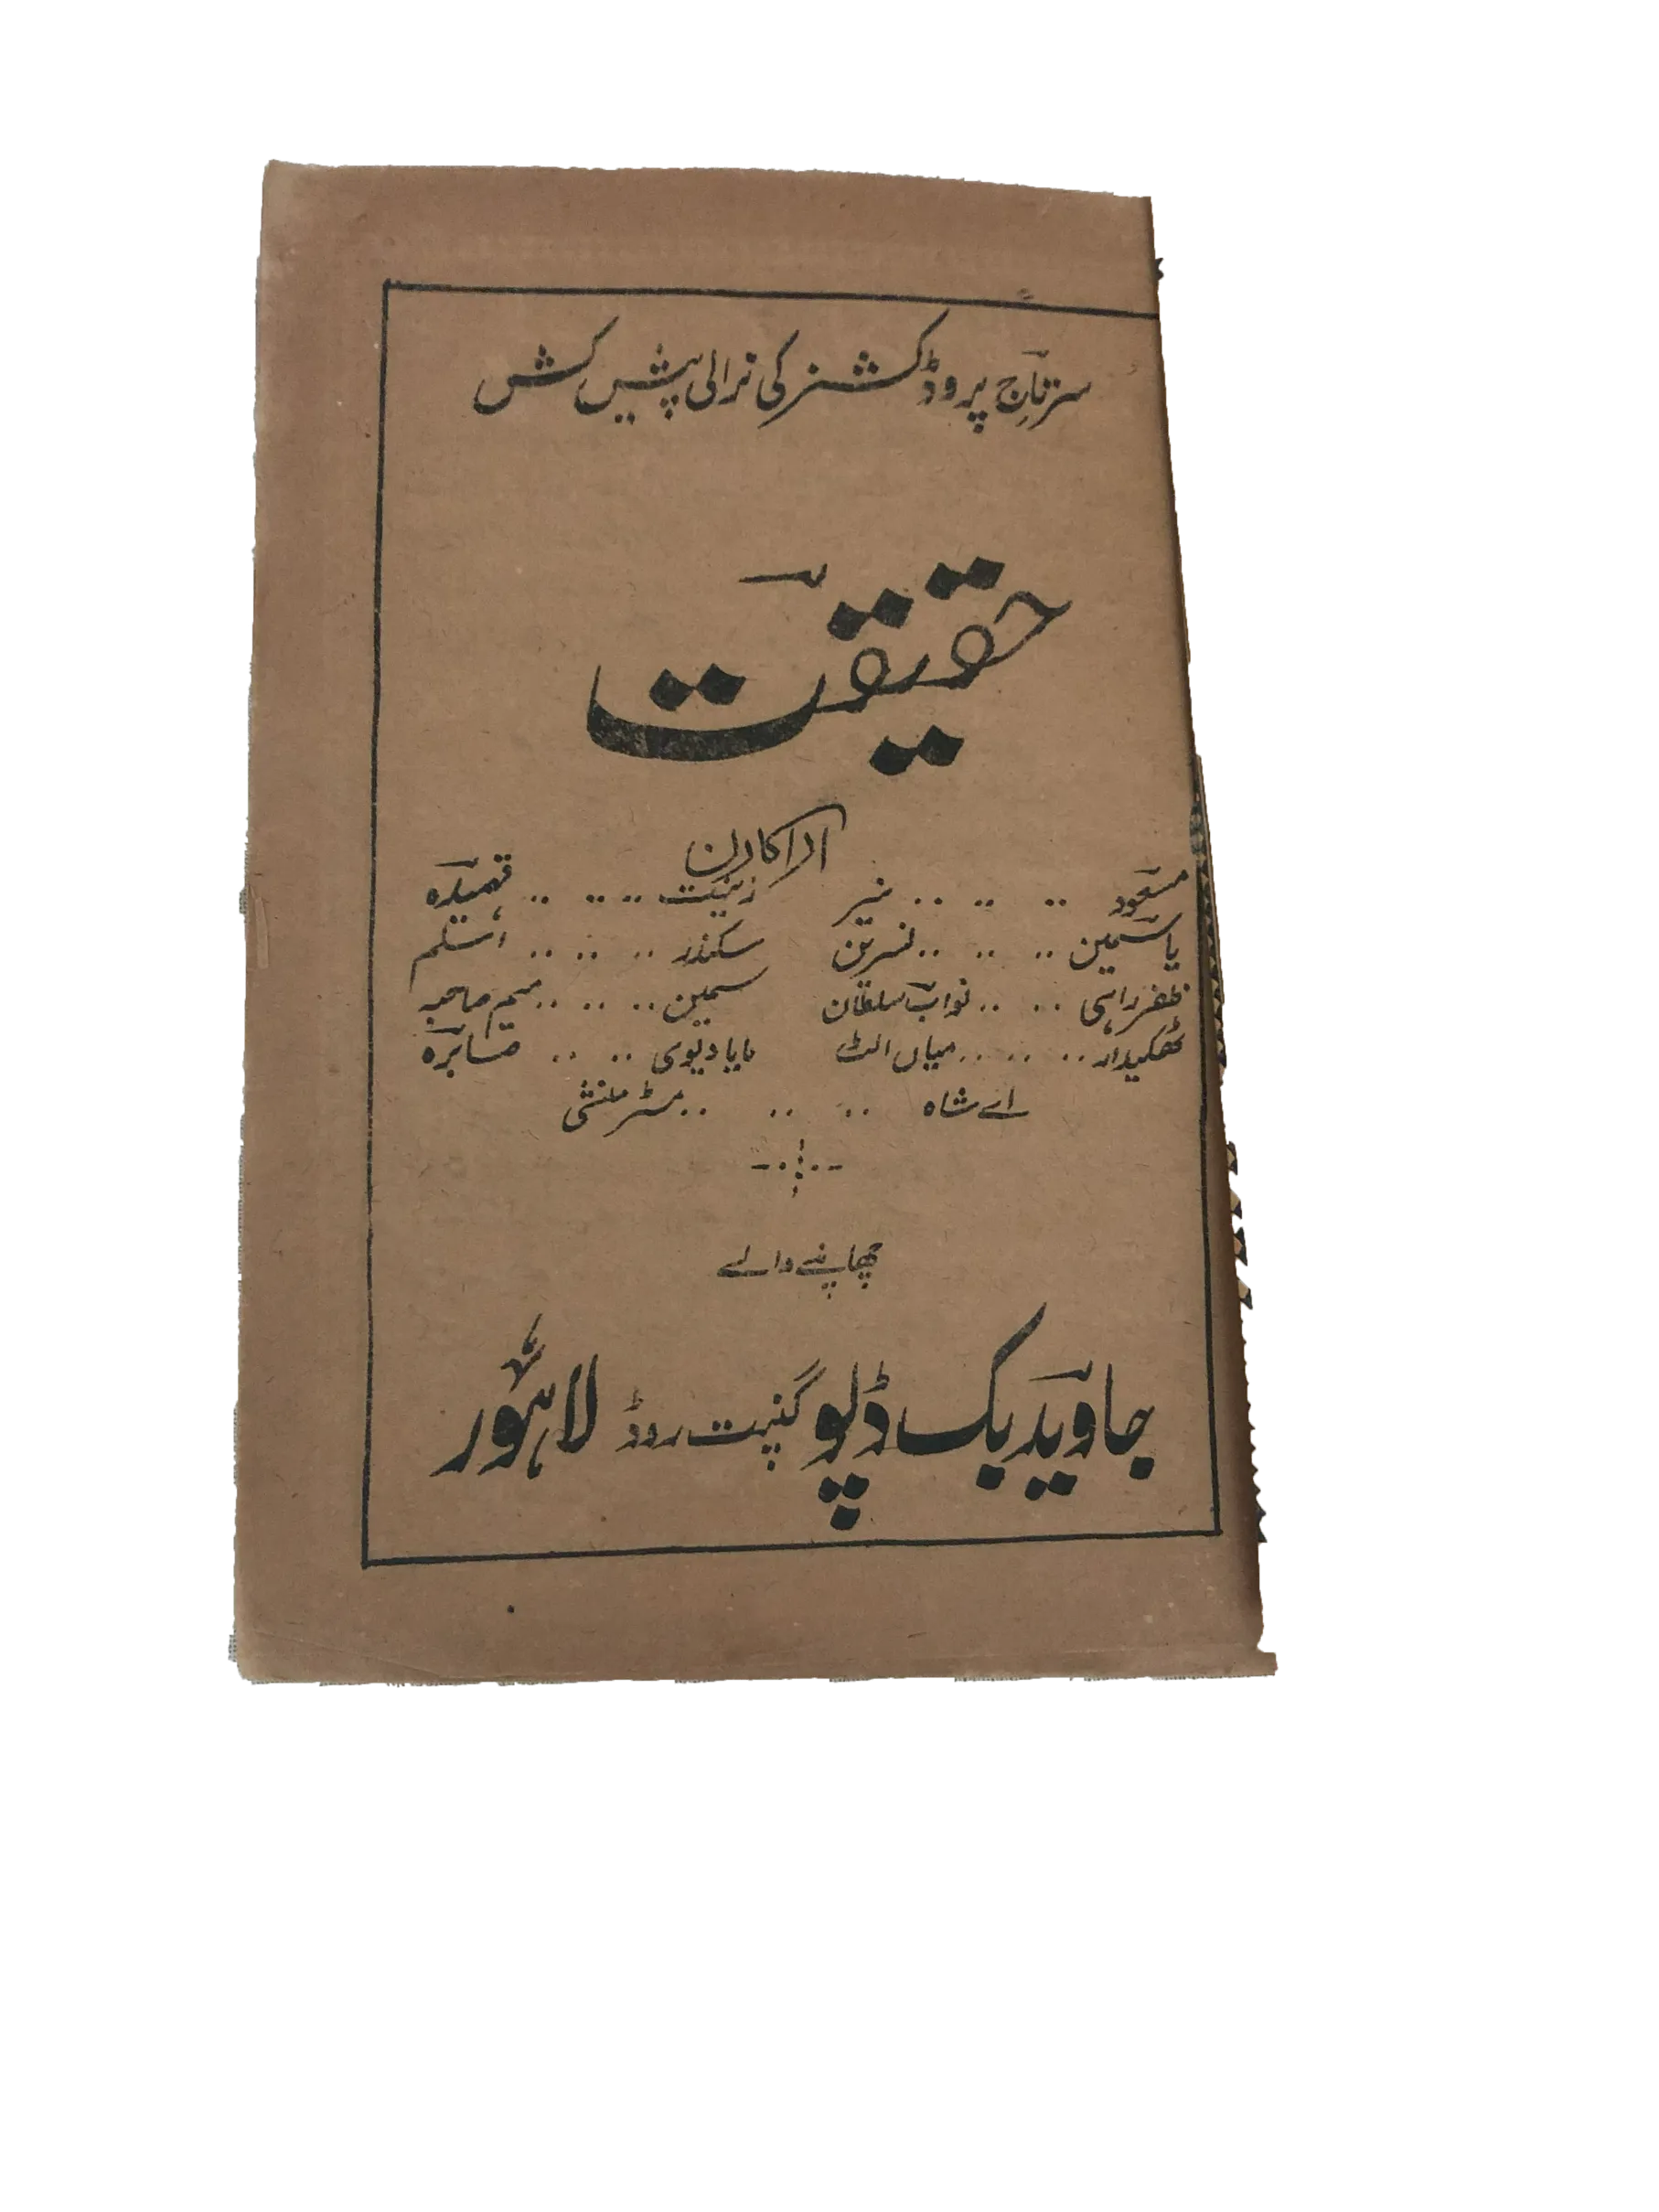 سرتاج پروڈکشنز کی نرالی پیش کش
حقیقت
اداکارن
مسعود .. .. .. منیر زینت .. .. .. فہمیدہ
یاسمین .. .. .. نسرین سکندر .. .. .. اسلم
ظفر راہی .. .. نواب سلطان سیمین .. .. .. میم صاحبہ
ٹھیکیدار .. .. .. میاں الٹ مایا دیوی .. .. صابرہ
اے شاہ .. .. .. مسٹر منشی
چھاپنے والے
جاوید بک ڈپو گنپت روڈ لاہور